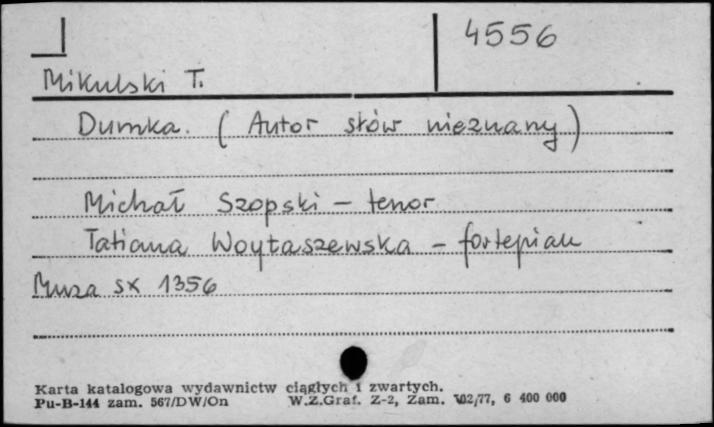 4556
Mikulski T.
Dumka. (Autor słów nieznany)
Michał Szopski - tenor
Tatiana Woytaszewska - fortepian
Muza SX 1356
Karta katalogowa wydawnictw ciągłych i zwartych.
Pu-B-144 zam. 567/DW/On W.Z.Graf. Z-2, Zam. 102/77, 6 400 000